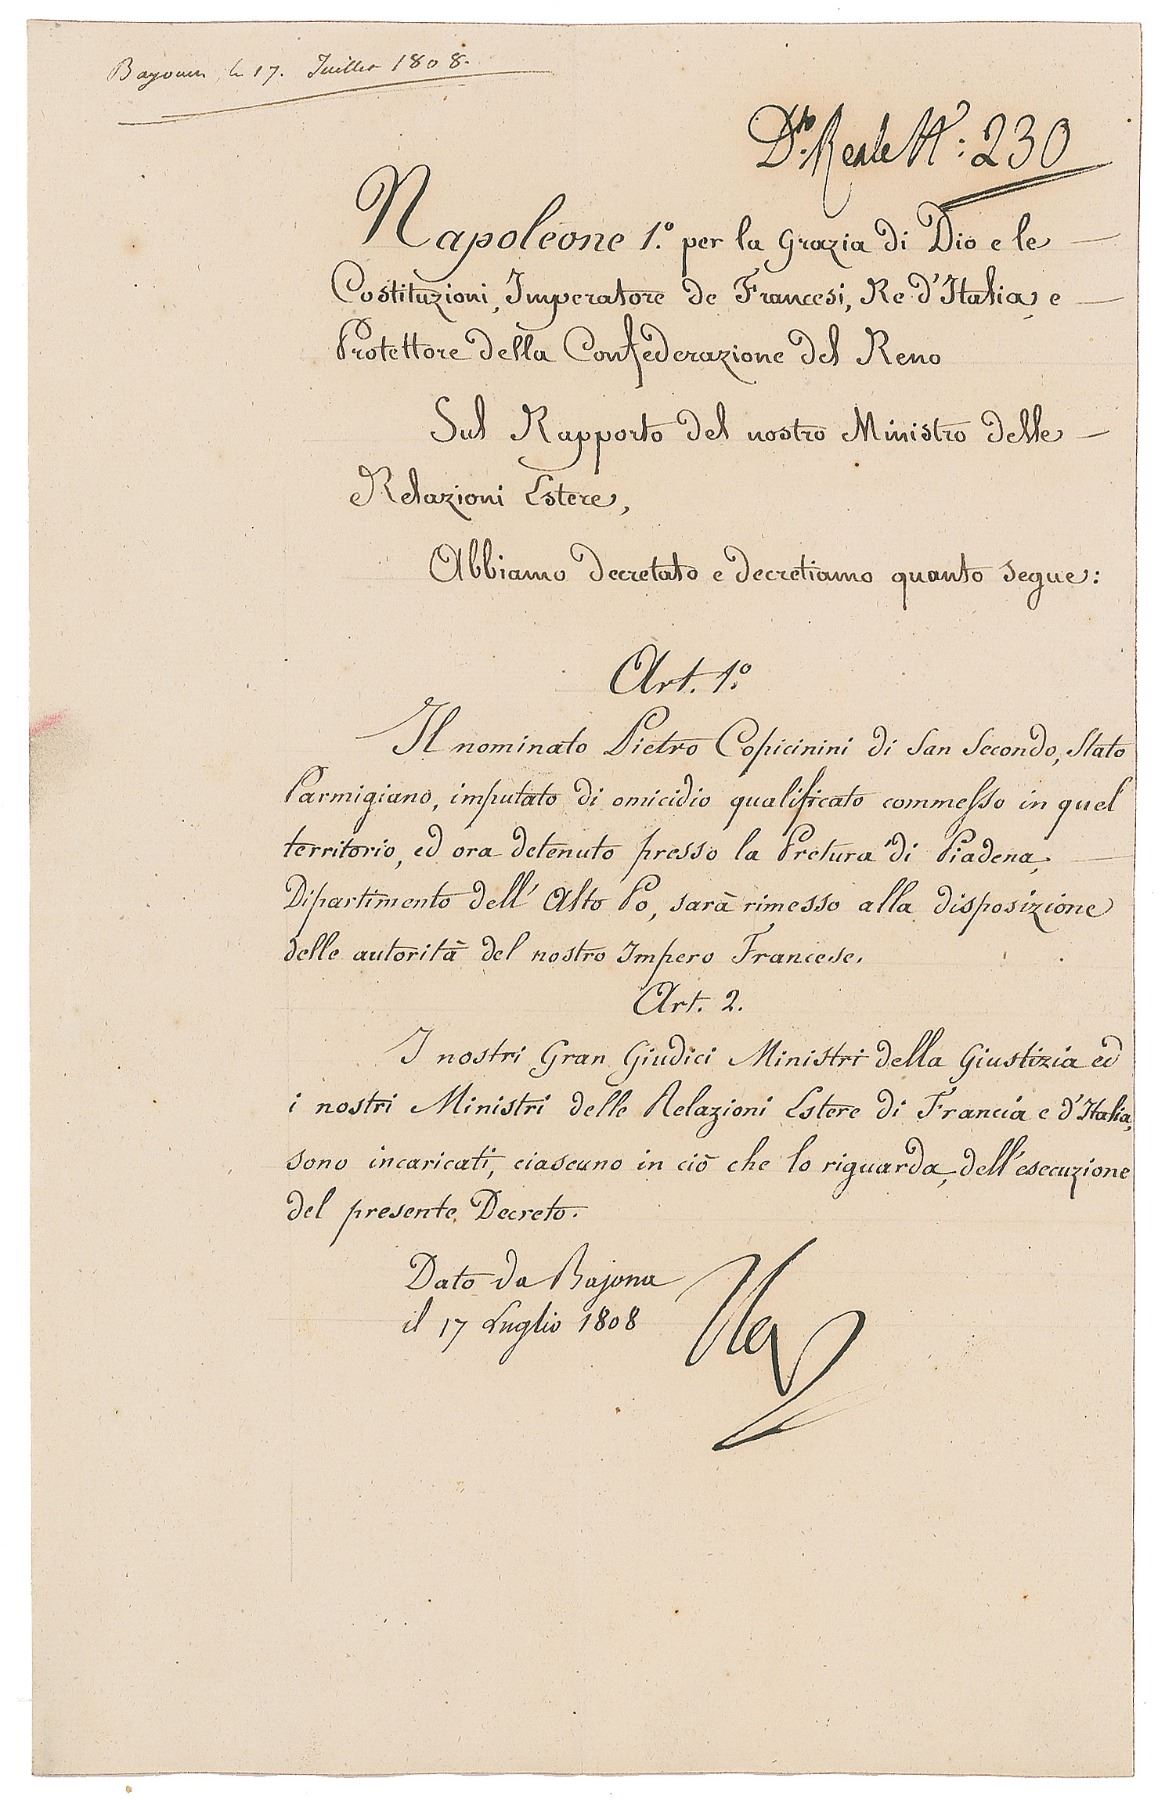 Bayonne, le 17. Juillet 1808.
D.to Reale N.º: 230
Napoleone 1.º per la Grazia di Dio e le
Costituzioni, Imperatore de Francesi, Re d'Italia, e
Protettore della Confederazione del Reno
Sul Rapporto del nostro Ministro delle
Relazioni Estere,
Abbiamo decretato e decretiamo quanto segue:
Art. 1.º
Il nominato Pietro Copicinini di San Secondo, Stato
Parmigiano, imputato di omicidio qualificato commesso in quel
territorio, ed ora detenuto presso la Pretura di Piadena,
Dipartimento dell' Alto Po, sarà rimesso alla disposizione
delle autorità del nostro Impero Francese.
Art. 2.
I nostri Gran Giudici Ministri della Giustizia ed
i nostri Ministri delle Relazioni Estere di Francia e d'Italia,
sono incaricati, ciascuno in ciò che lo riguarda, dell'esecuzione
del presente Decreto.
Dato da Bajona
il 17 Luglio 1808